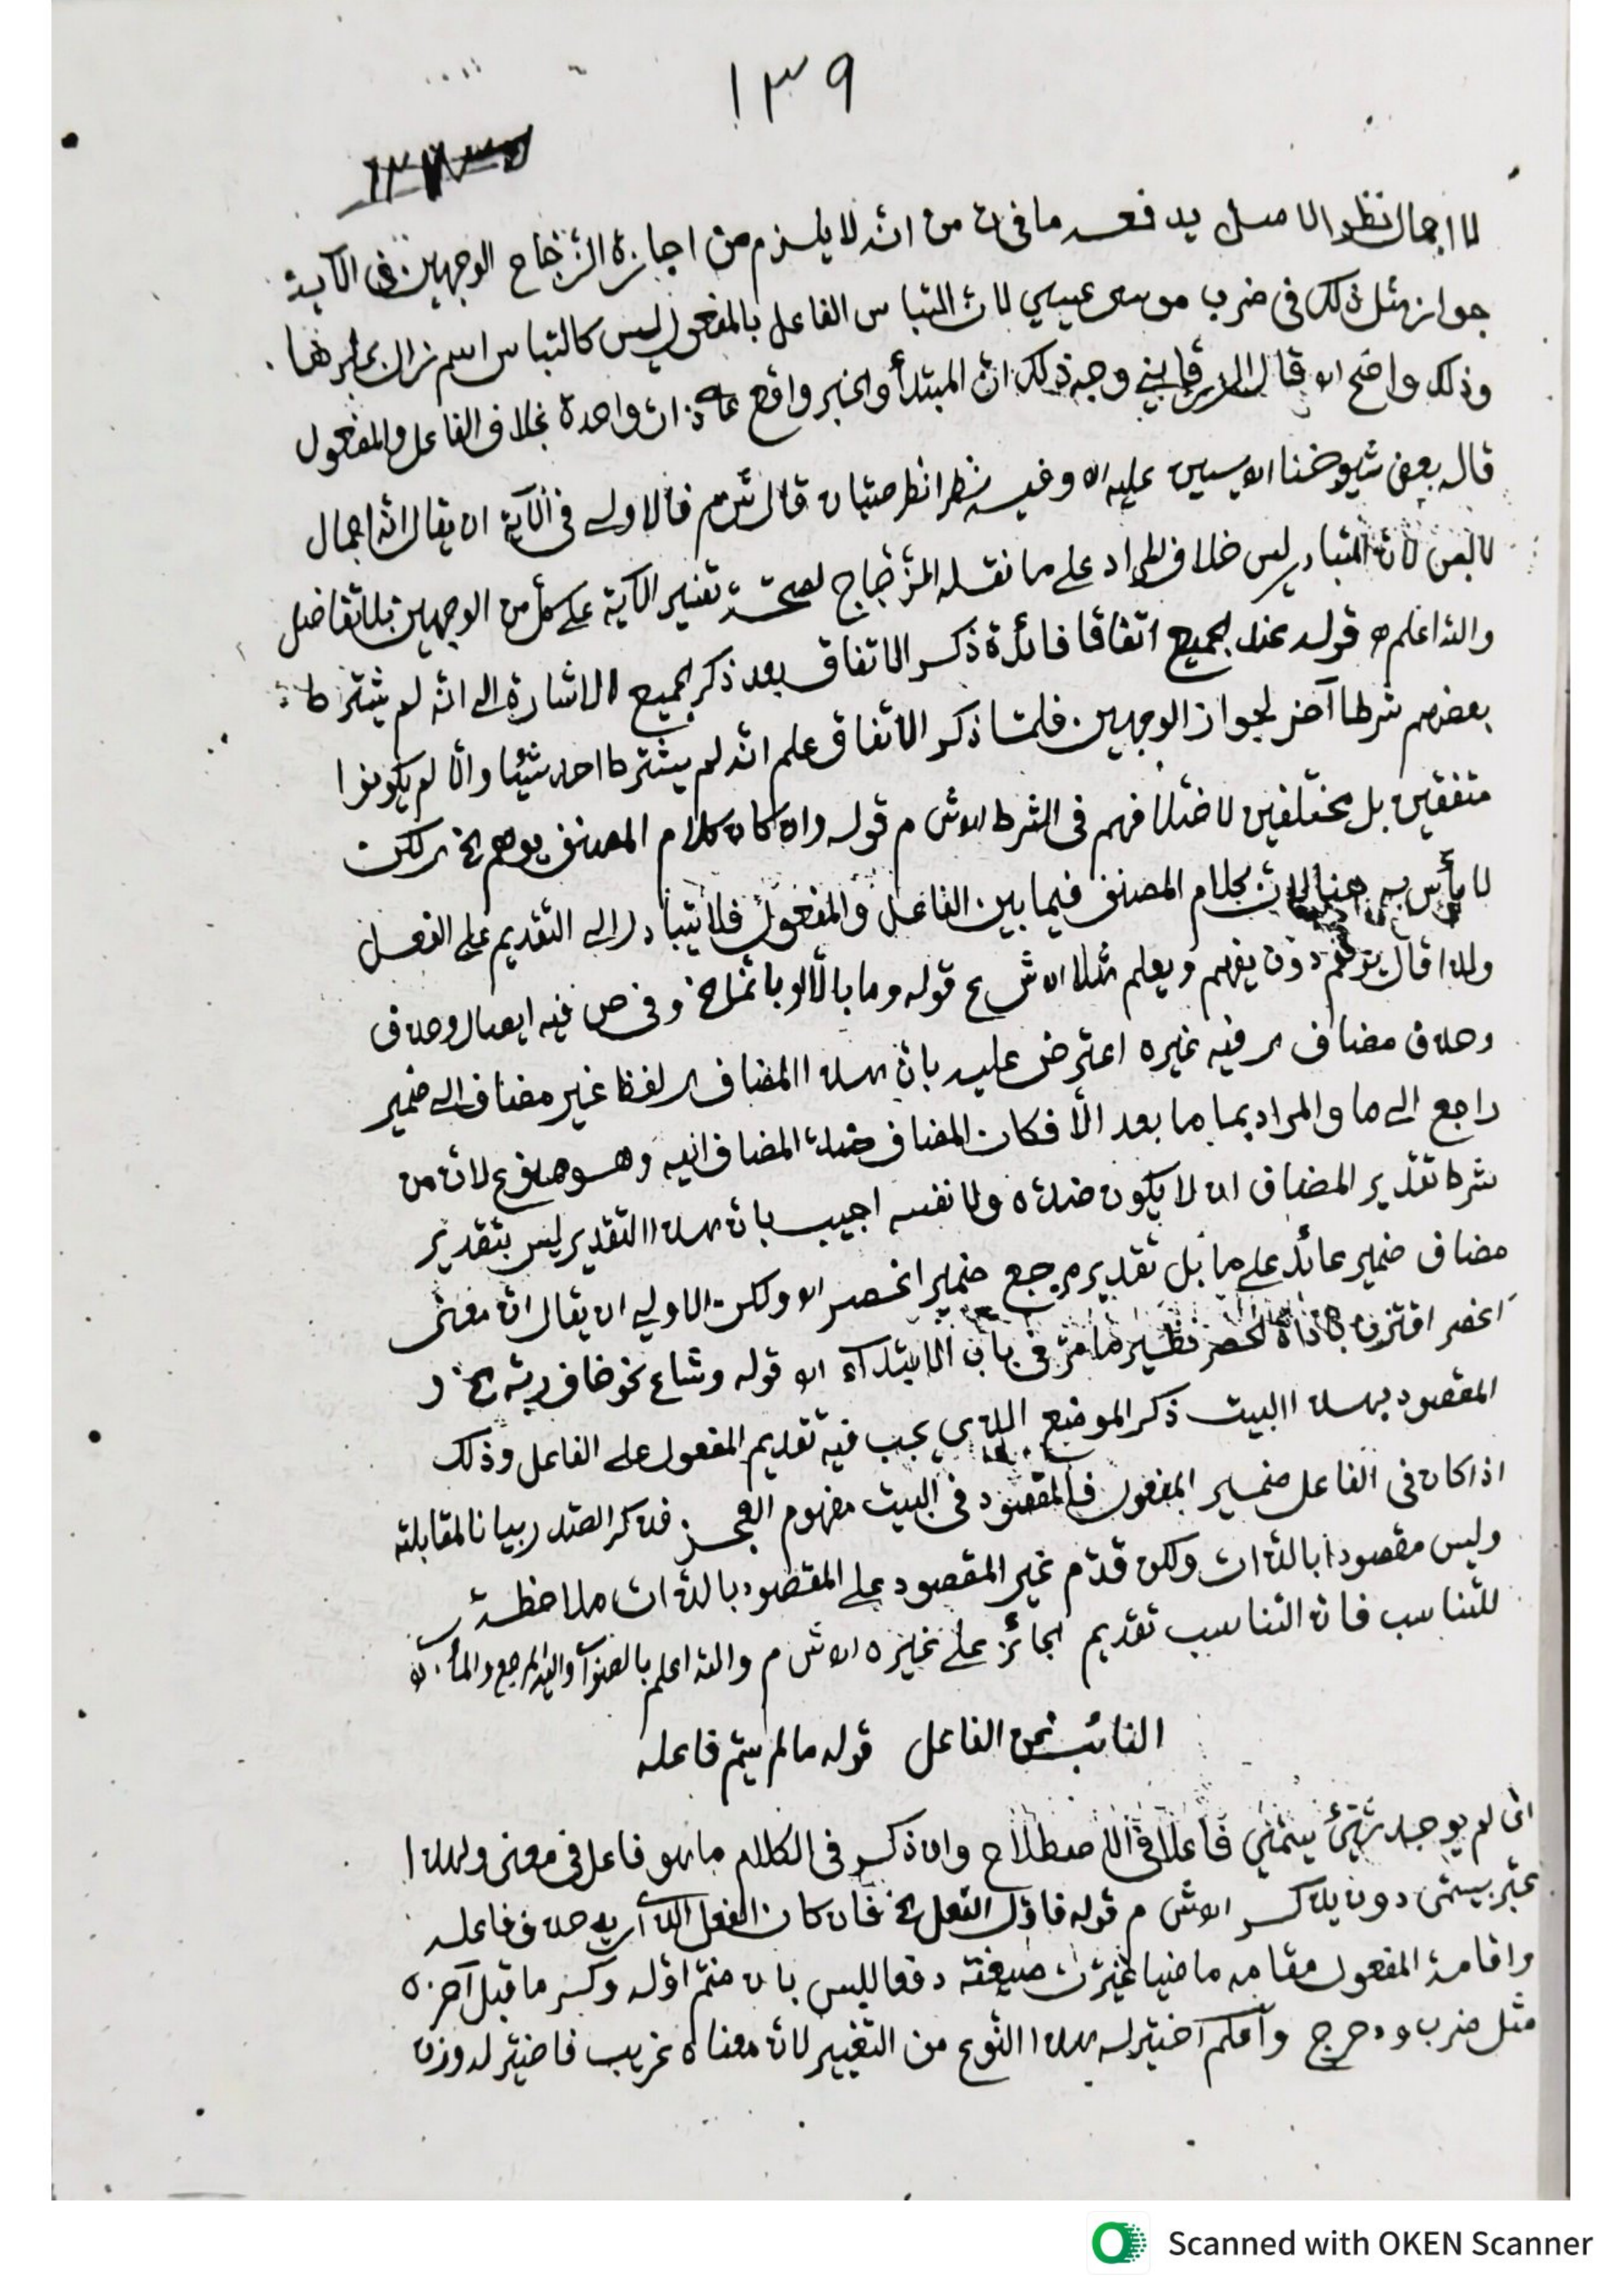 ١٣٩
لا اجمال نظرا لاصل يدفعه ما في ت من انّه لا يلزم من اجازة الزّجّاج الوجهين في الآية
جواز مثل ذلك في ضرب موسى عيسى لانّ التباس الفاعل بالمفعول ليس كالتباس اسم زال بخبرها
وذلك واضح اه قال الزرقاني وجه ذلك انّ المبتدأ والخبر واقع على ذات واحدة بخلاف الفاعل والمفعول
قاله بعض شيوخنا اه يسين عليه اه وفيه نظر انظر صبان قال ش م فالاولى في الآية ان يقال انّه اجمال
لا لبس لانّ المتبادر ليس خلاف المراد على ما نقله الزّجّاج لصحّة تفسير الآية على كل من الوجهين بلا تفاضل
والله اعلم قوله عند الجميع اتفاقا فائدة ذكر الاتفاق بعد ذكر الجميع الاشارة الى انّه لم يشترط
بعضهم شرطا آخر لجواز الوجهين فلمّا ذكر الاتفاق علم انّه لم يشترط احد شيئا والّا لم يكونوا
متفقين بل مختلفين لاختلافهم في الشرط اه ش م قوله وان كان كلام المصنف يوهم الخ لكن
لا بأس به هنا لانّ كلام المصنف فيما بين الفاعل والمفعول فلا يتبادر الى التقديم على الفعل
ولذا قال يوهم دون يفهم ويعلم مثلا اه ش ع قوله وما بالّا او بانّما الخ وفي ص فيه ايصال وحذف
وحذف مضاف فيه غيره اعترض عليه بانّ هذا المضاف لفظ غير مضاف الى ضمير
راجع الى ما والمراد بما ما بعد الّا فكان المضاف ضدّ المضاف اليه وهو ممنوع لانّ من
شرط تقدير المضاف ان لا يكون ضدّه ولا نفسه اجيب بانّ هذا التقدير ليس بتقدير
مضاف ضمير عائد على ما بل تقدير مرجع ضمير انحصر اه ولكن الاولى ان يقال انّ معنى
انحصر اقترن باداة الحصر نظير ما مرّ في باب الابتداء اه قوله وشاع نحو خاف ربّه الخ و
المقصود بهذا البيت ذكر الموضع الذي يجب فيه تقديم المفعول على الفاعل وذلك
اذا كان في الفاعل ضمير المفعول فالمقصود في البيت مفهوم العجز فذكر الصدر بيانا لمقابلته
وليس مقصودا بالذات ولكن قدّم غير المقصود على المقصود بالذات ملاحظة
للتناسب فانّ التناسب تقديم الجائز على غيره اه ش م والله اعلم بالصواب واليه المرجع والمآب
النائب عن الفاعل قوله ما لم يسمّ فاعله
اي لم يوجد شيئ يسمّى فاعلا في الاصطلاح وان ذكر في الكلام ما هو فاعل في معنى ولهذا
عبّر بيسمّى دون يذكر اه ش م قوله فاوّل الفعل الخ فان كان الفعل الذي اريد حذف فاعله
واقامة المفعول مقامه ماضيا غيّرت صيغته دفعا للبس بان ضمّ اوّله وكسر ما قبل آخره
مثل ضرب ودحرج واكرم اختير له هذا النّوع من التغيير لانّ معناه غريب فاختير له وزن
Scanned with OKEN Scanner